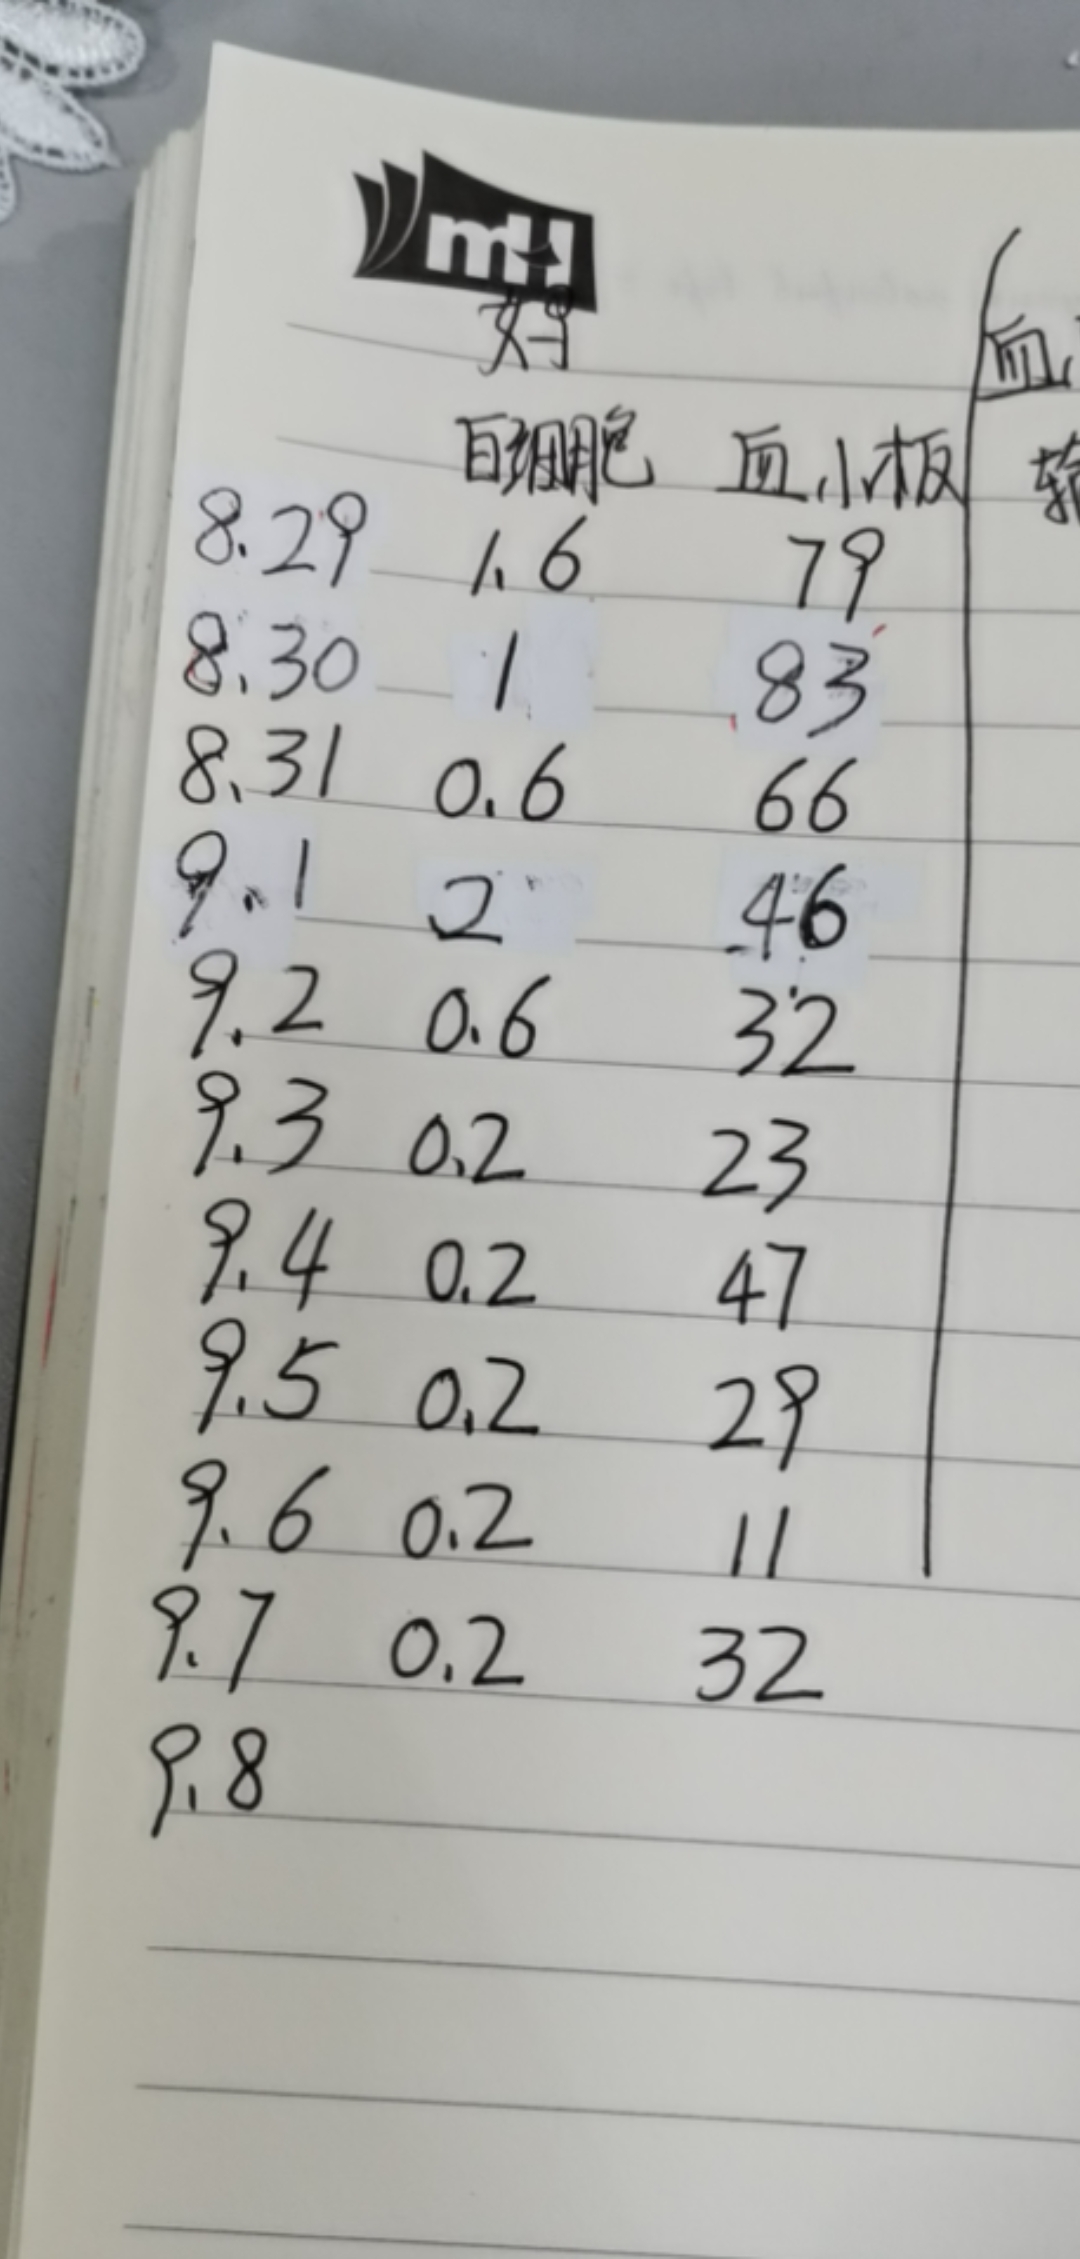 mH
好
白细胞 血小板 血
8.29 1.6 79
8.30 1 83
8.31 0.6 66
9.1 2 46
9.2 0.6 32
9.3 0.2 23
9.4 0.2 47
9.5 0.2 29
9.6 0.2 11
9.7 0.2 32
9.8